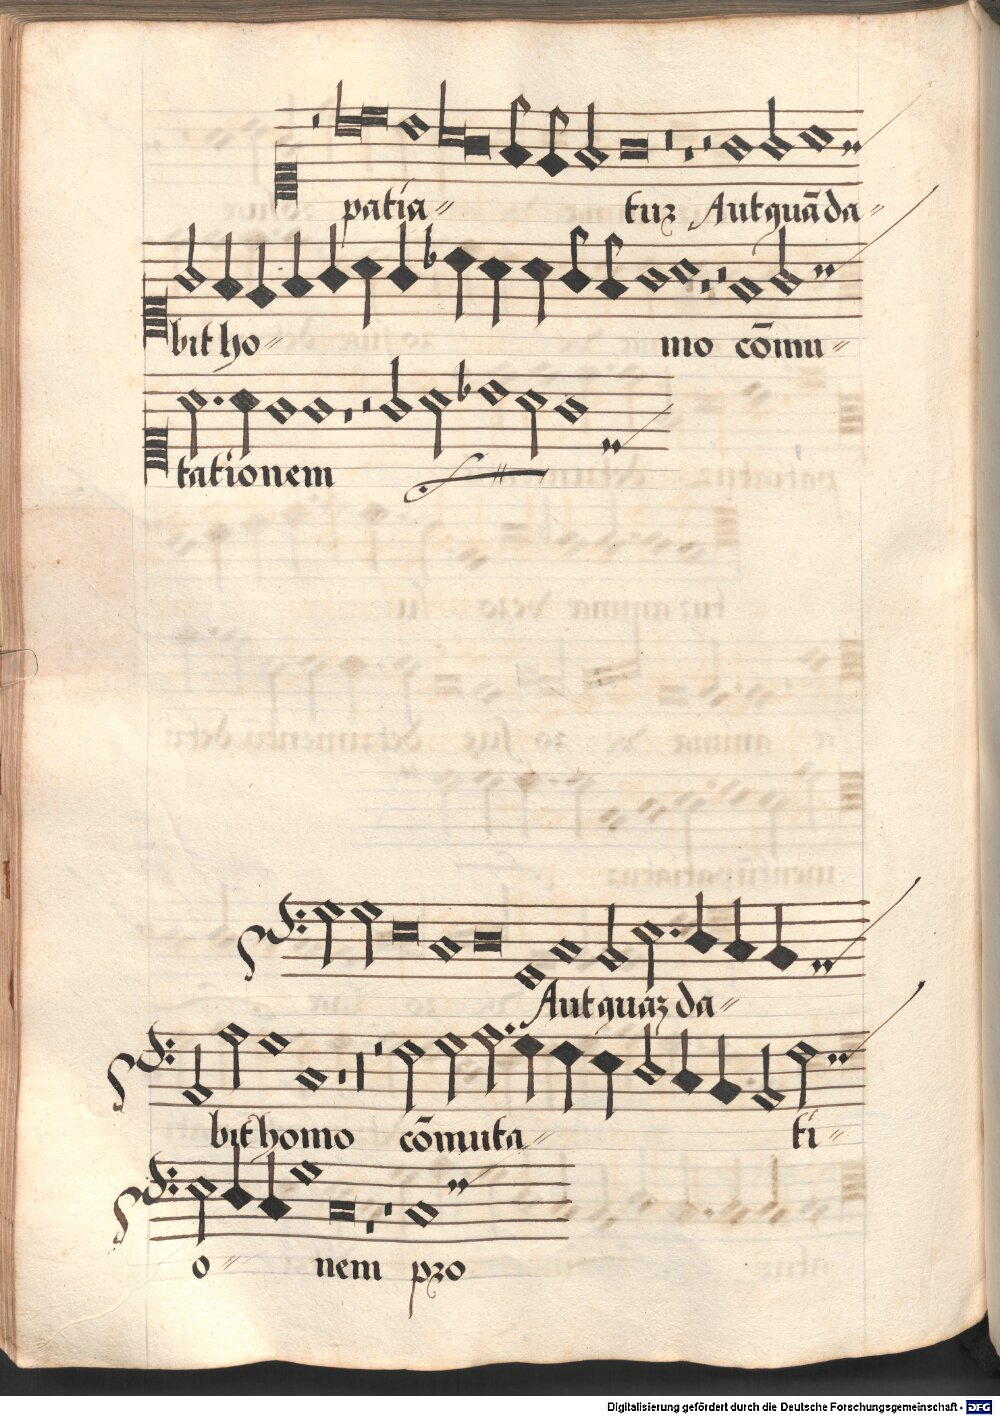 patia〃 tur Aut quā da〃
bit ho〃 mo cōmu〃
tationem
Aut quaz da〃
bit homo cōmuta〃 ti〃
o〃 nem pro
Digitalisierung gefördert durch die Deutsche Forschungsgemeinschaft - DFG